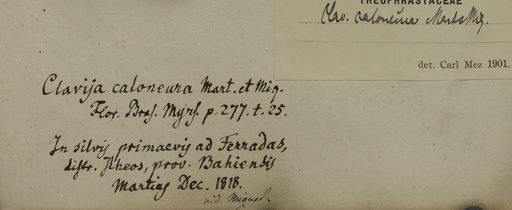 THEOPHRASTACEAE
Clav. caloneura Mart & Miq.
det. Carl Mez 1901.
Clavija caloneura Mart. et Miq.
Flor. Bras. Myrs. p. 277. t. 25.
In silvis primaevis ad Ferradas,
distr. Ilheos, prov. Bahiensis
Martius Dec. 1818.
vid. Miquel.